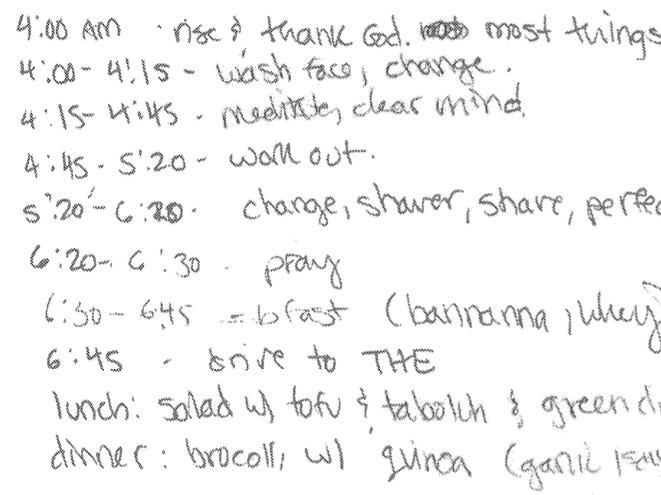 4:00 AM · rise & thank God. most things
4:00 - 4:15 - wash face, change.
4:15 - 4:45 - meditate, clear mind.
4:45 - 5:20 - work out.
5:20 - 6:20 - change, shaver, share, perfec
6:20 - 6:30 - pray
6:30 - 6:45 = bfast (bannanna, whey
6:45 - drive to THE
lunch: salad w/ tofu & tabolih & green d
dinner: brocolli w/ quinoa (garlic